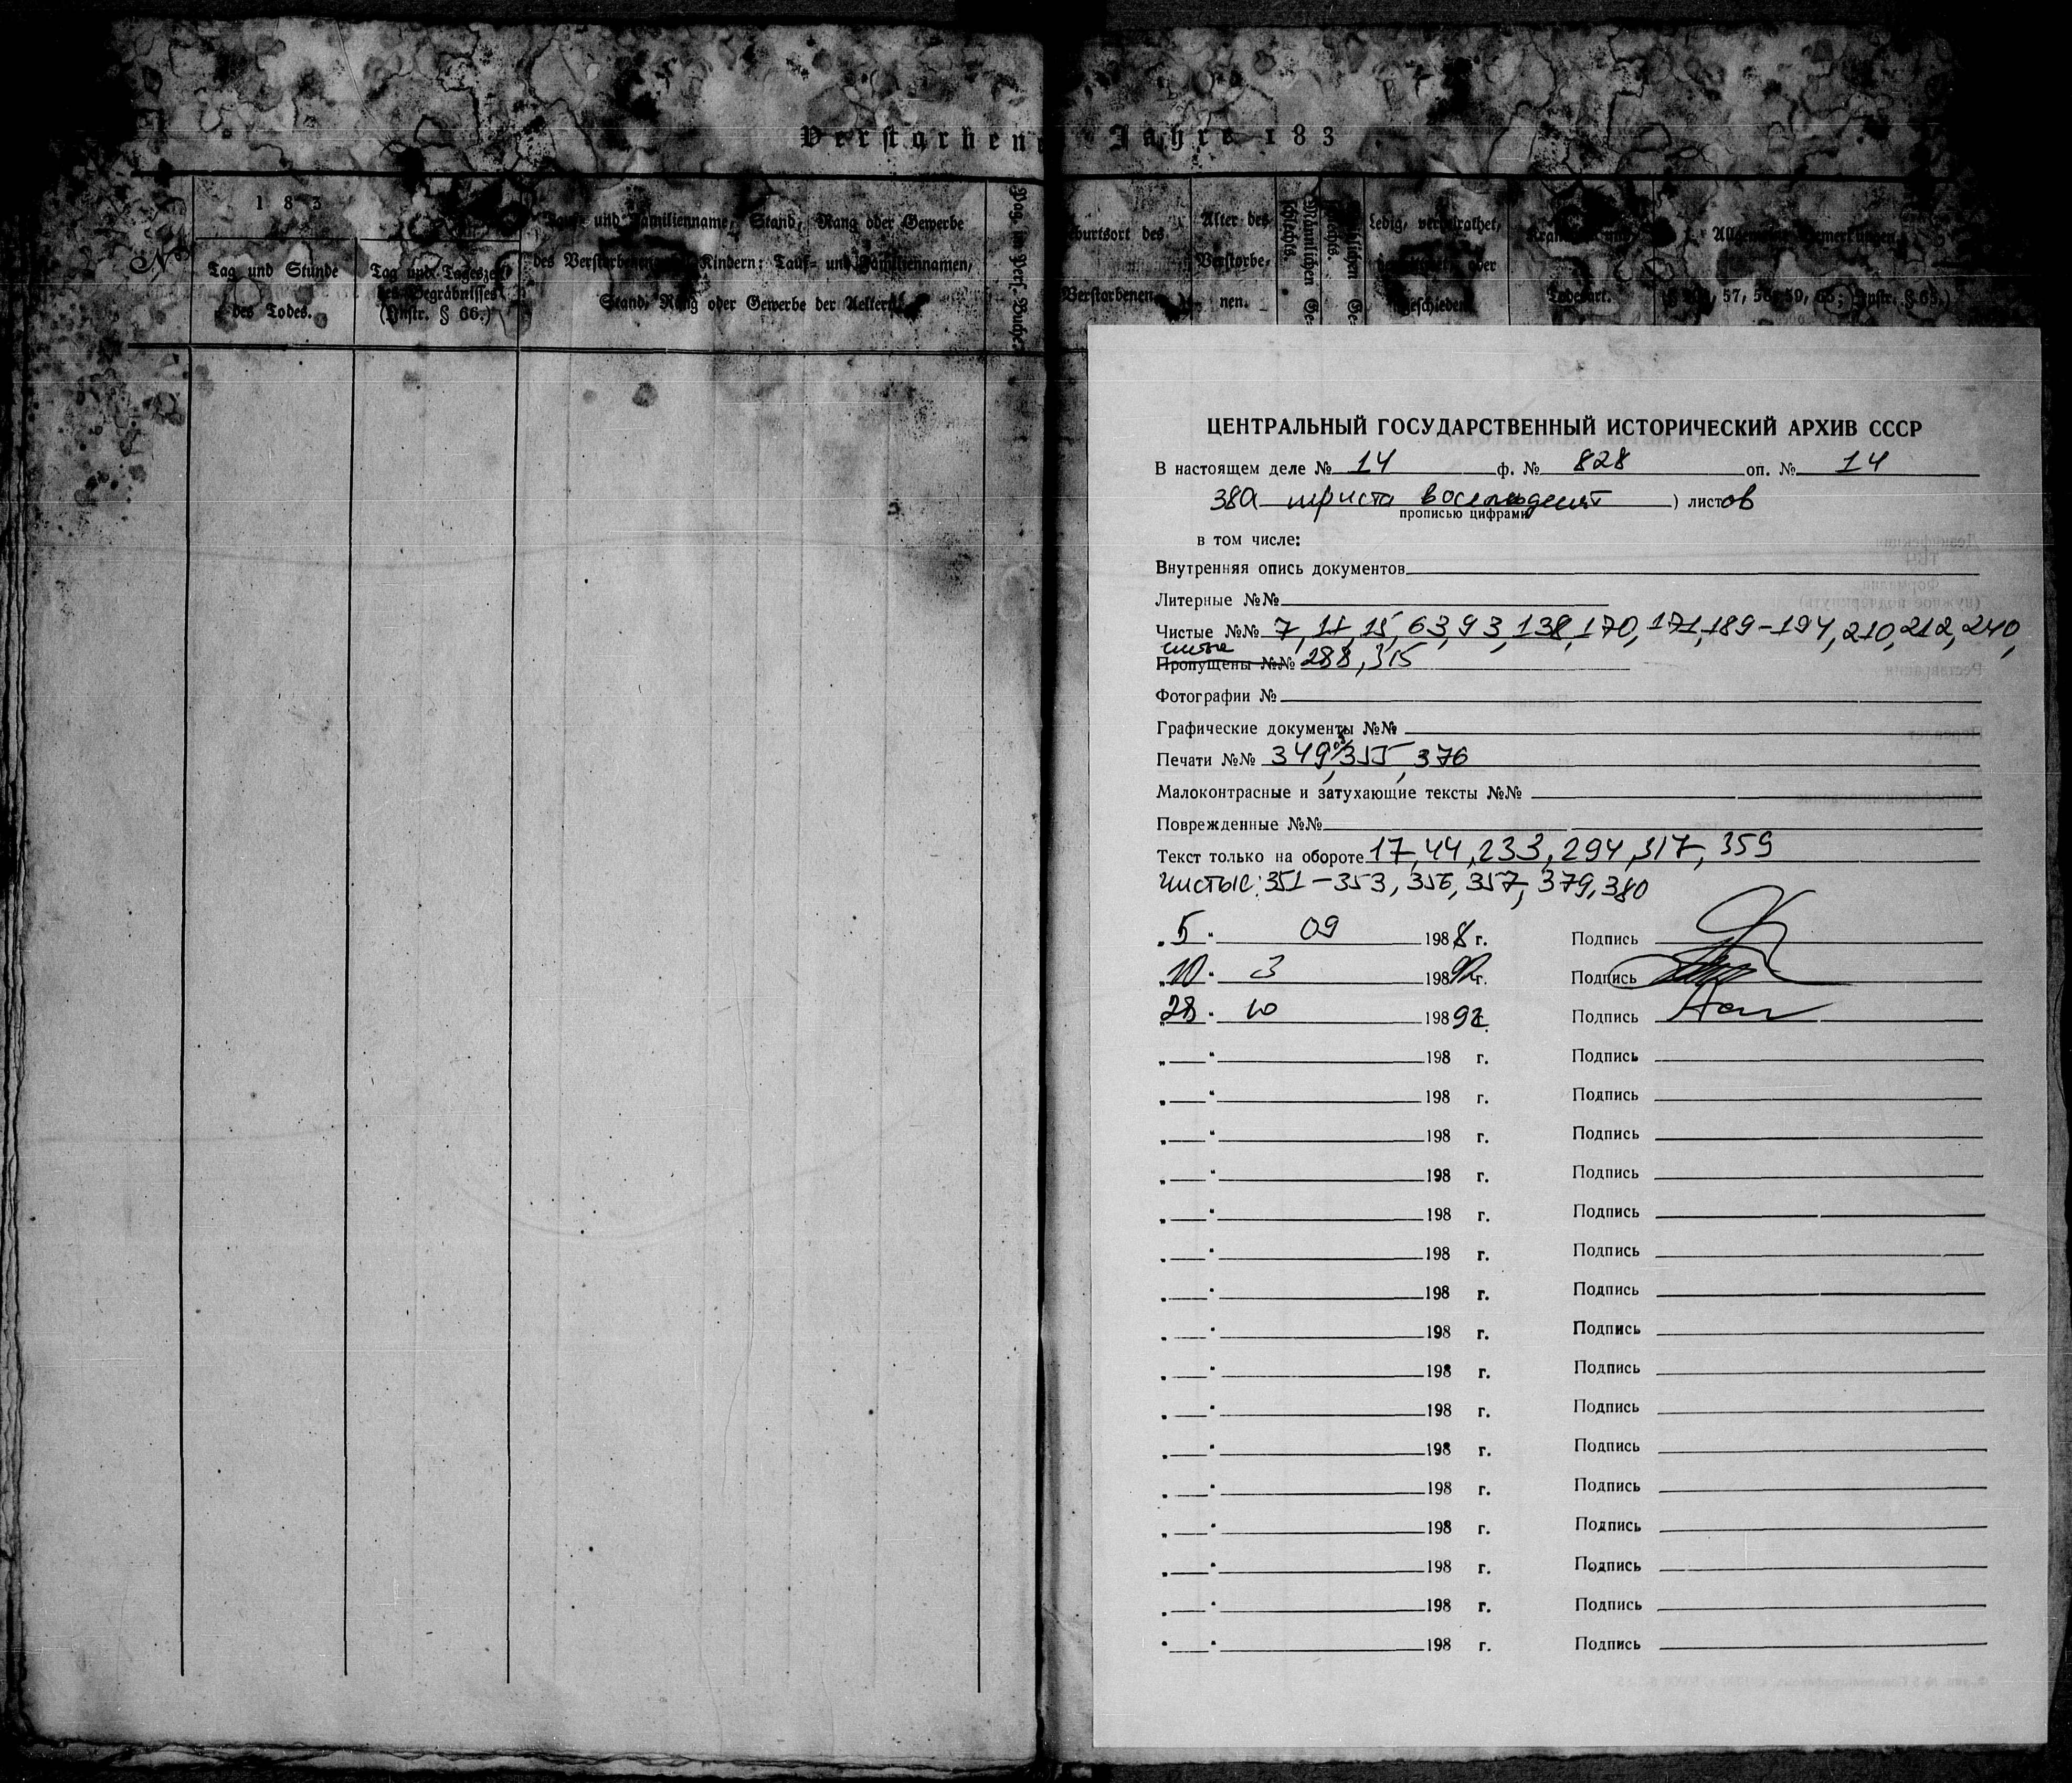 Verstorbene Jahre 183
№
183
Tag und Stunde
des Todes.
Tag und Tageszeit
des Begräbnisses
(Instr. § 66.)
Tauf- und Familienname, Stand, Rang oder Gewerbe
des Verstorbenen; Kindern: Tauf- und Familiennamen,
Stand, Rang oder Gewerbe der Aeltern.
Pag. im Pers. Buche.
Geburtsort des
Verstorbenen.
Alter des
Verstorbe-
nen.
Männlichen Ge-
schlechts.
Weiblichen Ge-
schlechts.
Ledig, verheirathet,
oder
geschieden.
Todesart.
Allgemeine Bemerkungen.
57, 58, 59, 65; Instr. § 65.)
ЦЕНТРАЛЬНЫЙ ГОСУДАРСТВЕННЫЙ ИСТОРИЧЕСКИЙ АРХИВ СССР
В настоящем деле № 14 ф. № 828 оп. № 14
380 триста восемьдесят ) листов
прописью цифрами
в том числе:
Внутренняя опись документов
Литерные №№
Чистые №№ 7, 11, 15, 63, 93, 138, 170, 171, 189-194, 210, 212, 240,
чистые
Пропущены №№ 288, 315
Фотографии №
Графические документы №№
Печати №№ 349об, 355, 376
Малоконтрасные и затухающие тексты №№
Поврежденные №№
Текст только на обороте 17, 44, 233, 294, 317, 359
Чистые: 351-353, 356, 357, 379, 380
„5“ 09 1988 г. Подпись
„10“ 3 19892 г. Подпись
„28“ 10 19892 г. Подпись
„ “ 198 г. Подпись
„ “ 198 г. Подпись
„ “ 198 г. Подпись
„ “ 198 г. Подпись
„ “ 198 г. Подпись
„ “ 198 г. Подпись
„ “ 198 г. Подпись
„ “ 198 г. Подпись
„ “ 198 г. Подпись
„ “ 198 г. Подпись
„ “ 198 г. Подпись
„ “ 198 г. Подпись
„ “ 198 г. Подпись
„ “ 198 г. Подпись
„ “ 198 г. Подпись
„ “ 198 г. Подпись